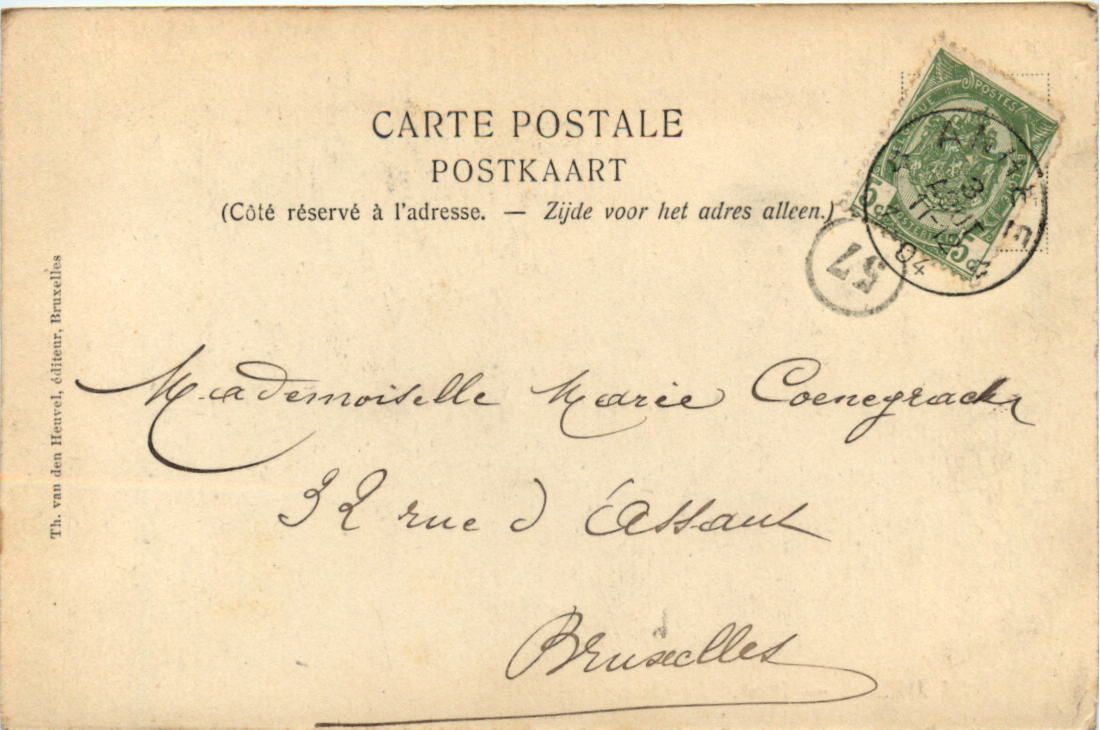 CARTE POSTALE
POSTKAART
(Côté réservé à l'adresse. — Zijde voor het adres alleen.)
POSTES
5 5
04
57
Mademoiselle Marie Coenegrachts
32 rue d'Assaut
Bruxelles
Th. van den Heuvel, éditeur, Bruxelles